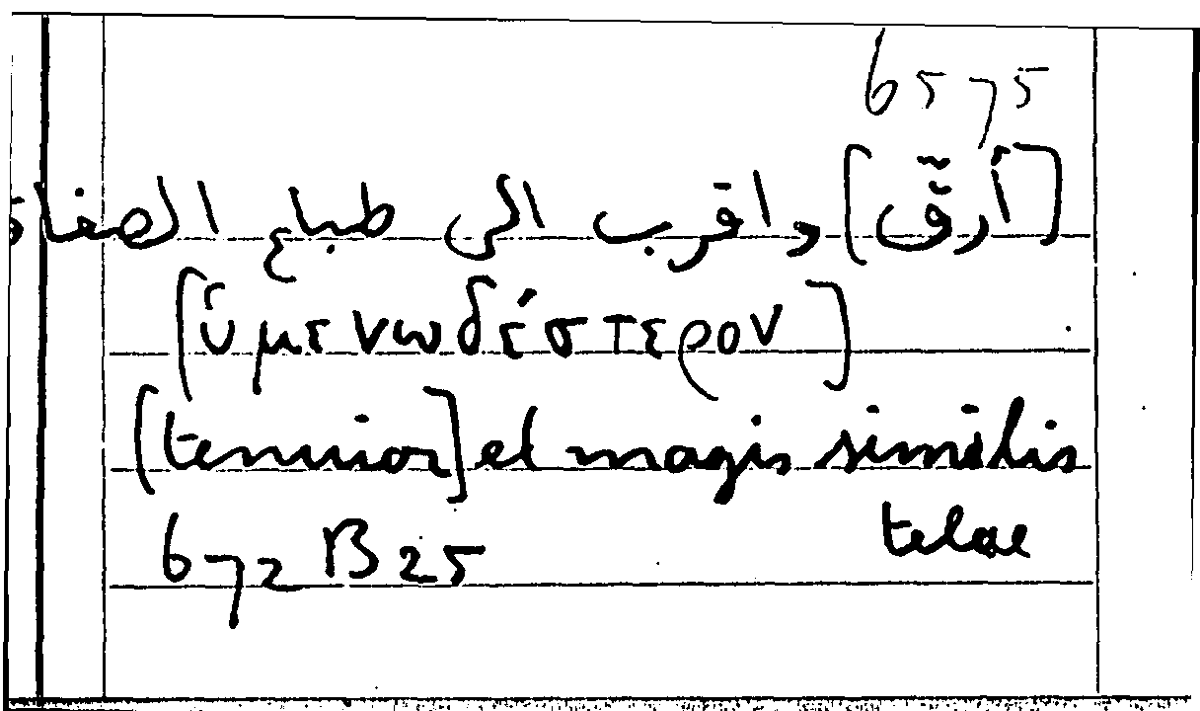 6575
[أرقّ] واقرب الى طباع الصفاق
[ὑμενωδέστερον]
[tenuior] et magis similis
telae
672 B 25